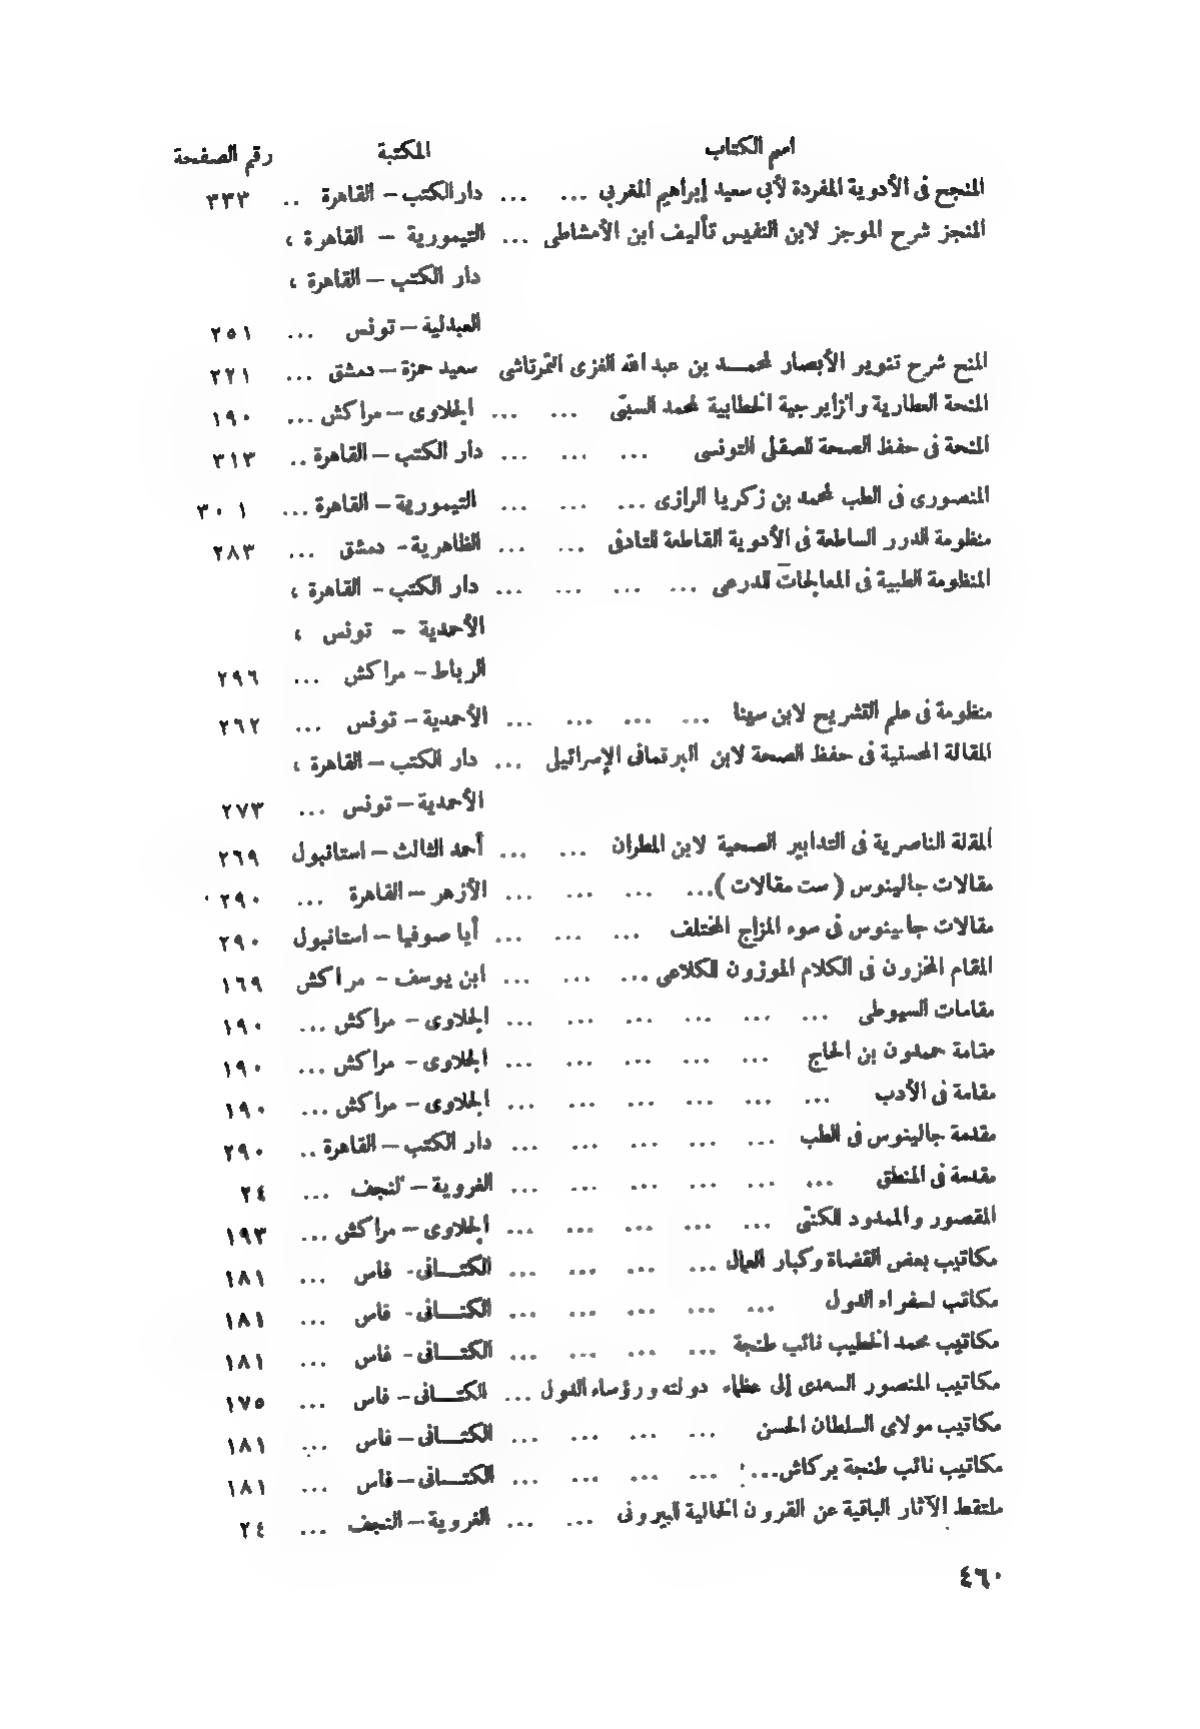 اسم الكتاب المكتبة رقم الصفحة
المنجح فى الأدوية المفردة لأبي سعيد إبراهيم المغربي ... ... دار الكتب – القاهرة .. ٣٣٣
المنجز شرح الموجز لابن النفيس تأليف ابن الأمشاطى ... التيمورية – القاهرة ،
دار الكتب – القاهرة ،
العبدلية – تونس ... ٢٥١
المنح شرح تنوير الأبصار لمحمد بن عبد الله الغزى التمرتاشى سعيد حمزة – دمشق ... ٢٢١
المنحة العطارية والزايرجية الخطابية لمحمد السبتى ... ... الجلاوى – مراكش ... ١٩٠
المنحة فى حفظ الصحة للصقلى التونسى ... ... ... دار الكتب – القاهرة .. ٣١٣
المنصورى فى الطب لمحمد بن زكريا الرازى ... ... ... التيمورية – القاهرة ... ٣٠١
منظومة الدرر الساطعة فى الأدوية القاطعة للتادفى ... ... الظاهرية - دمشق ... ٢٨٣
المنظومة الطبية فى المعالجات للدرعى ... ... ... ... دار الكتب – القاهرة ،
الأحمدية – تونس ،
الرباط – مراكش ... ٢٩٦
منظومة فى علم التشريح لابن سينا ... ... ... ... الأحمدية – تونس ... ٢٦٢
المقالة المحسنية فى حفظ الصحة لابن البرتمانى الإسرائيلى ... دار الكتب – القاهرة ،
الأحمدية – تونس ... ٢٧٣
المقالة الناصرية فى التدابير الصحية لابن المطران ... ... أحمد الثالث – استانبول ٢٦٩
مقالات جالينوس ( ست مقالات ) ... ... ... ... الأزهر – القاهرة ... ٢٩٠
مقالات جالينوس فى سوء المزاج المختلف ... ... ... أيا صوفيا – استانبول ٢٩٠
المقام المخزون فى الكلام الموزون للكلاعى ... ... ... ابن يوسف – مراكش ١٦٩
مقامات السيوطى ... ... ... ... ... ... الجلاوى – مراكش ... ١٩٠
مقامة حمدون بن الحاج ... ... ... ... ... الجلاوى – مراكش ... ١٩٠
مقامة فى الأدب ... ... ... ... ... ... الجلاوى – مراكش ... ١٩٠
مقدمة جالينوس فى الطب ... ... ... ... ... دار الكتب – القاهرة .. ٢٩٠
مقدمة فى المنطق ... ... ... ... ... ... الغروية – النجف ... ٢٤
المقصور والممدود للكتى ... ... ... ... ... الجلاوى – مراكش ... ١٩٣
مكاتيب بعض القضاة وكبار العمال ... ... ... ... الكتـــانى - فاس ... ١٨١
مكاتب لسفراء الدول ... ... ... ... ... الكتـــانى - فاس ... ١٨١
مكاتيب محمد الخطيب نائب طنجة ... ... ... ... الكتـــانى - فاس ... ١٨١
مكاتيب المنصور السعدى إلى عظماء دولته ورؤساء الدول ... الكتـــانى – فاس ... ١٧٥
مكاتيب مولاى السلطان الحسن ... ... ... ... الكتـــانى – فاس ... ١٨١
مكاتيب نائب طنجة بركاش ... ... ... ... ... الكتـــانى – فاس ... ١٨١
ملتقط الآثار الباقية عن القرون الخالية للبيرونى ... ... الغروية – النجف ... ٢٤
٤٦٠